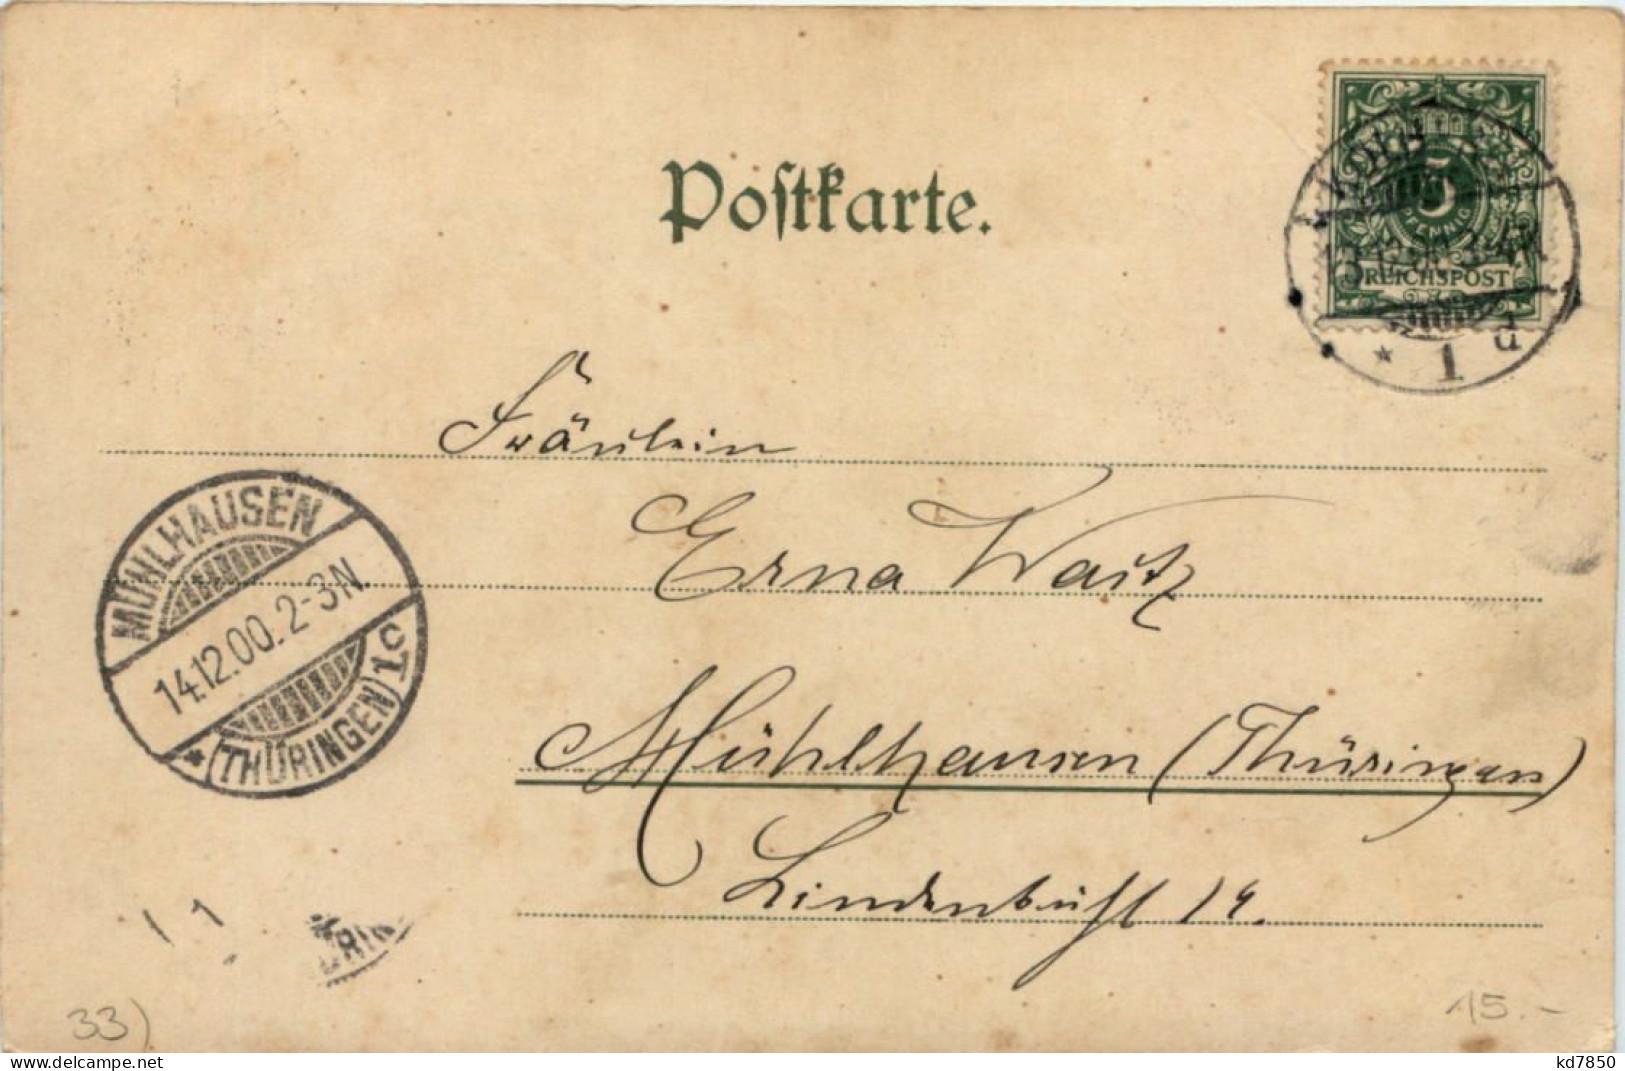 Postkarte.
5
PFENNIG
REICHSPOST
* 1 d
Fräulein
Erna Waitz
MÜHLHAUSEN
14.12.00. 2-3N.
* (THÜRINGEN) 1c
Mühlhausen (Thüringen)
Lindenbühl 14.
33)
15.-
kd7850